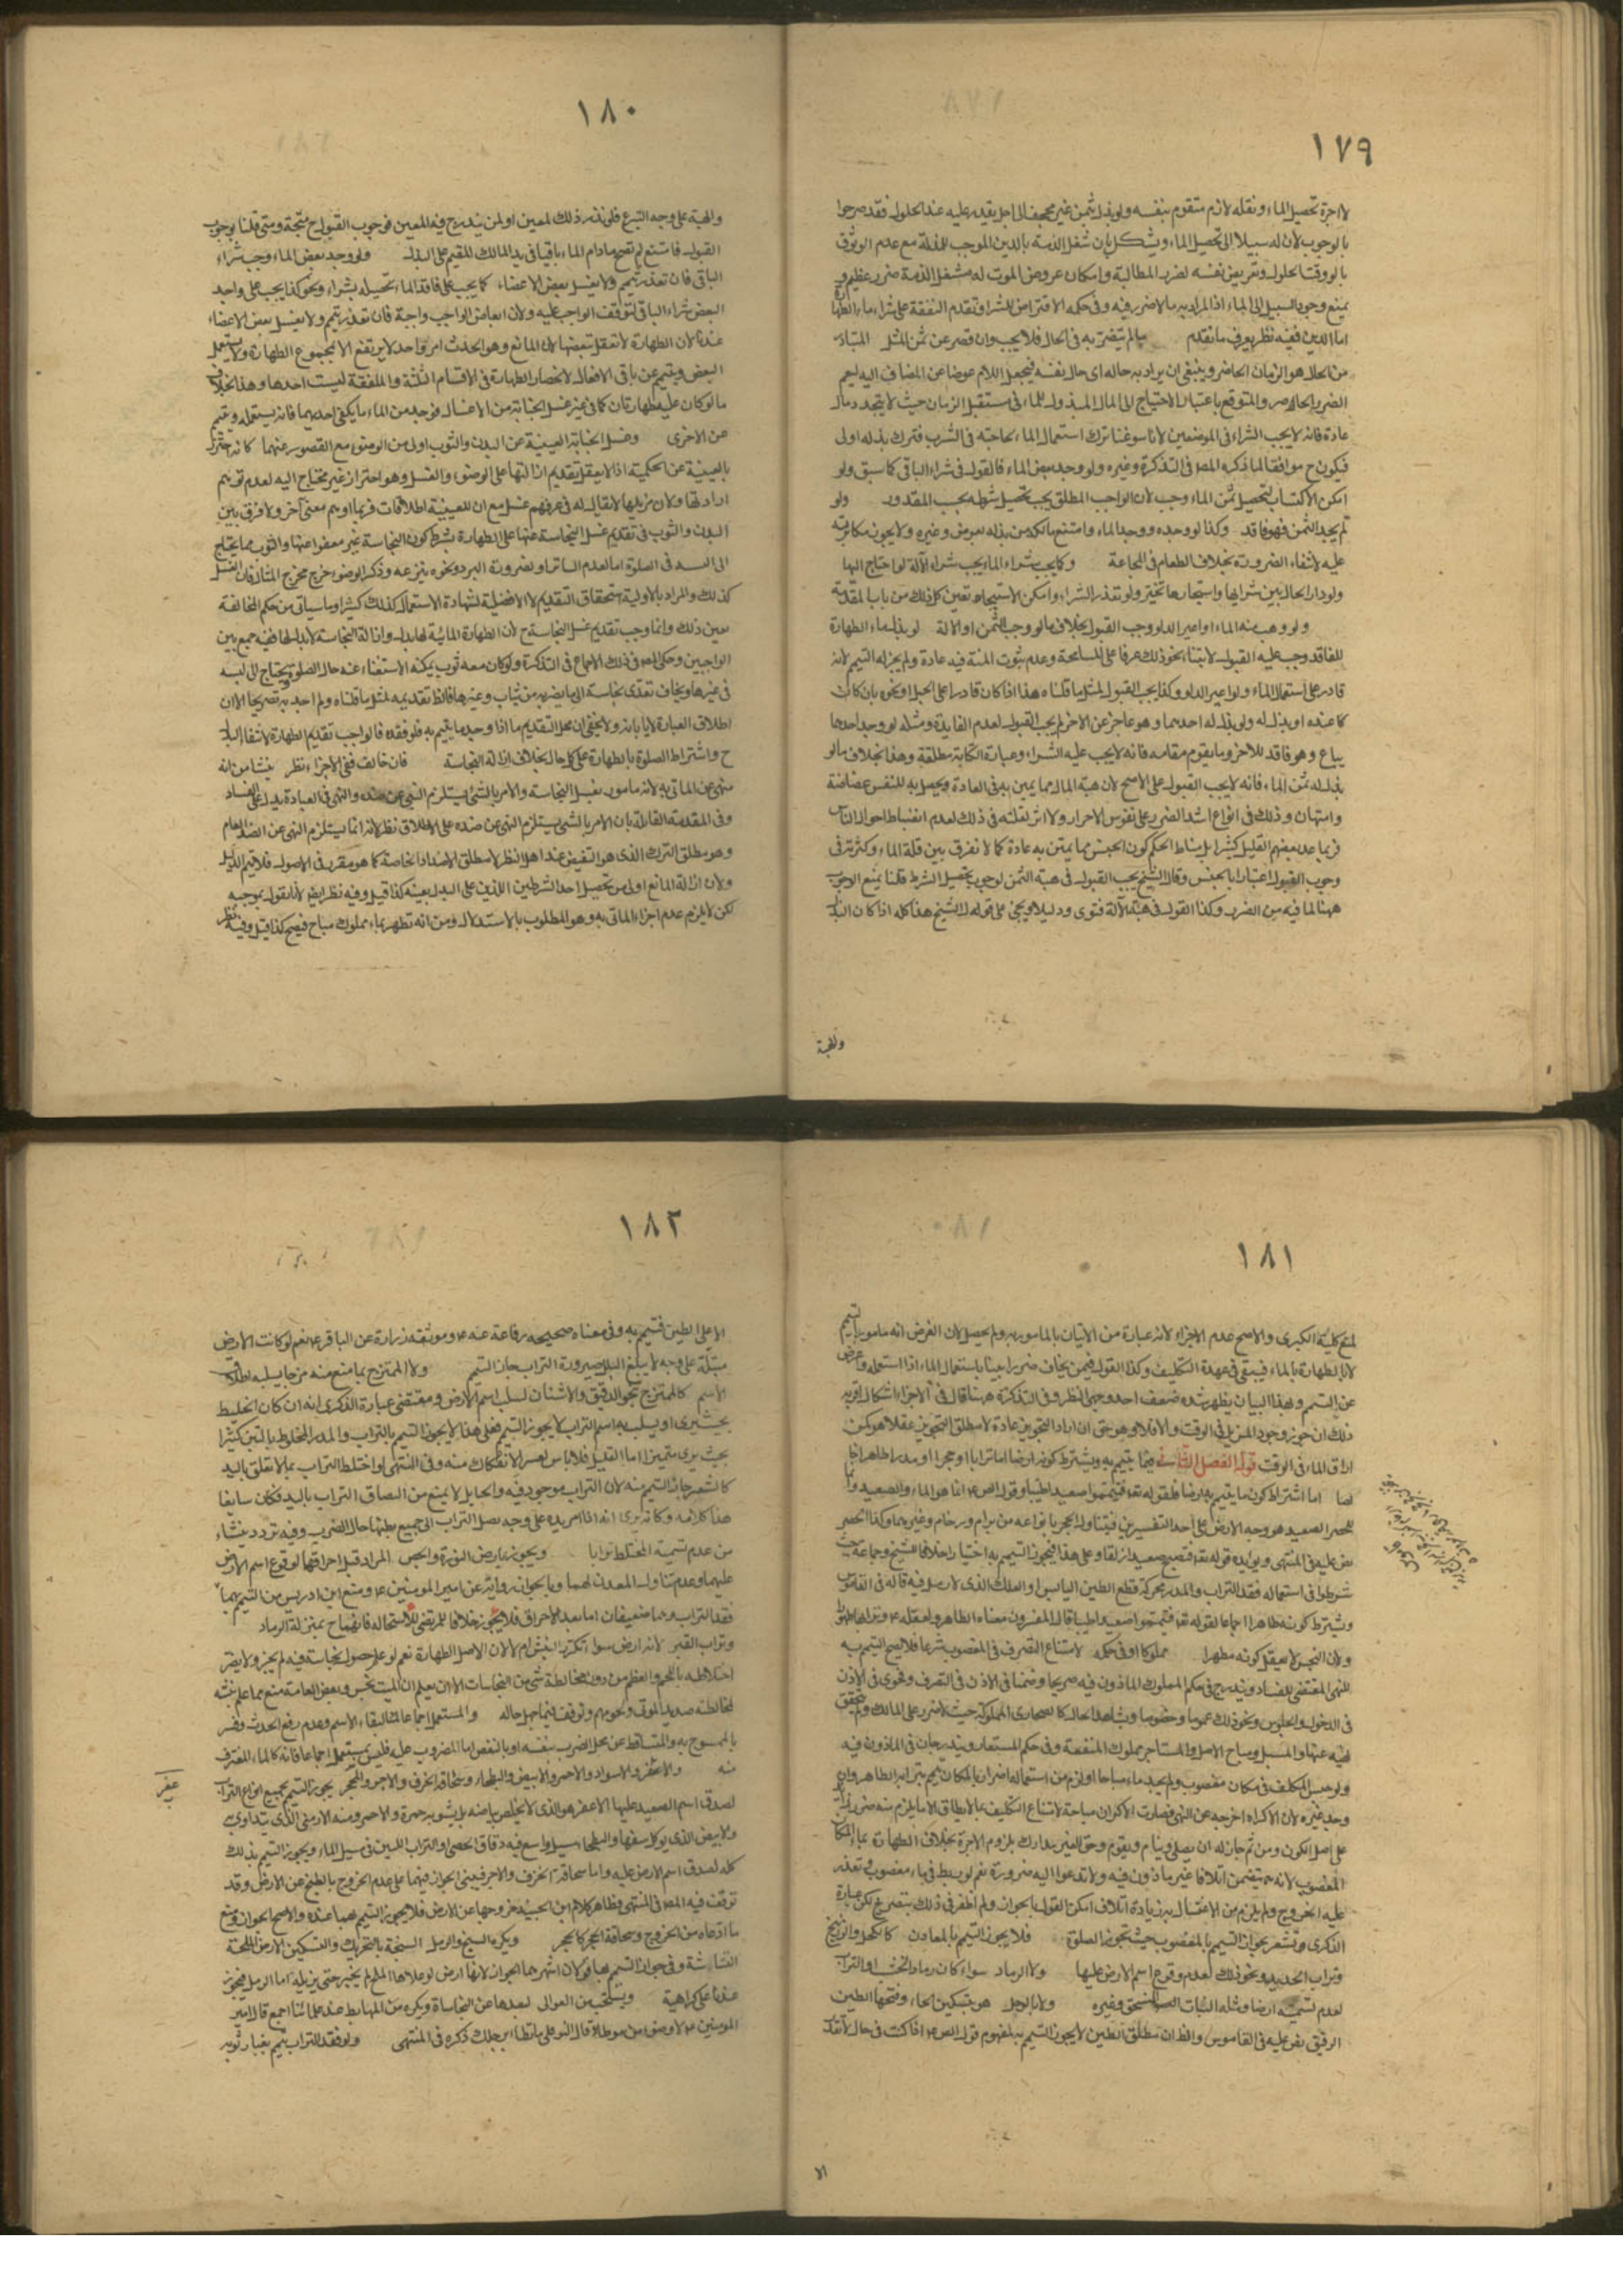 ١٧٩
لاجرة تحصيل الماء ونقله لازم متقوم بنفسه ولو بذل بثمن غير مجحف الى اجل يقدر عليه عند الحلول فقد صرحوا
بالوجوب لان له سبيلا الى تحصيل الماء ويشكل بان شغل الذمة بالدين الموجب للمذلة مع عدم الوثوق
بالوفاء وقت الحلول وتعريض نفسه لضرر المطالبة وامكان عروض الموت له مشغل الذمة ضرر عظيم و
يمنع وجود السبيل الى الماء اذ المراد به ما لا ضرر فيه وفي حكمه الاقتراض للشراء وتقدم النفقة على شراء ماء الطهارة
اما الدين ففيه نظر يعرف مما تقدم ما لم يتضرر به في الحال فلا يجب وان قصر عن ثمن المثل المتبادر
من الحال هو الزمان الحاضر وينبغي ان يراد به حاله اى حال نفسه فيجعل اللام عوضا عن المضاف اليه ليعم
الضرر الحاضر والمتوقع باعتبار الاحتياج الى المال المبذول للماء في مستقبل الزمان حيث لا يتجدد مال
عادة فانه لا يجب الشراء في الموضعين لانا سوغنا ترك استعمال الماء لحاجته في الشرب فترك بذله اولى
فيكون ح موافقا لما ذكره المصـ في التذكرة وغيره ولو وجد بعض الماء فالقول في شراء الباقي كما سبق ولو
امكن الاكتساب لتحصيل ثمن الماء وجب لان الواجب المطلق يجب تحصيل شرطه بحسب المقدور ولو
لم يجد الثمن فهو فاقد وكذا لو وجده ووجد الماء وامتنع مالكه من بذله بعوض وغيره ولا يجوز مكابرته
عليه لانتفاء الضرورة بخلاف الطعام في المجاعة وكما يجب شراء الماء يجب شراء الآلة لو احتاج اليها
ولو دار الحال بين شرائها واستيجارها تخير ولو تعذر الشراء وامكن الاستيجار تعين كل ذلك من باب المقدمة
ولو وهب منه الماء او اعير الدلو وجب القبول بخلاف ما لو وهب الثمن او الآلة لو بذل ماء الطهارة
للفاقد وجب عليه القبول لابتناء نحو ذلك عرفا على المسامحة وعدم ثبوت المنة فيه عادة ولم يجز له التيمم لانه
قادر على استعمال الماء ولو اعير الدلو وكذا يجب القبول لمثل ما قلناه هذا اذا كان قادرا على الحبل ونحوه بان كانت
كما عنده او بذل له ولو بذل له احدهما وهو عاجز عن الآخر لم يجب القبول لعدم الفايدة ومثله لو وجد احدهما
يباع وهو فاقد للآخر وما يقوم مقامه فانه لا يجب عليه الشراء وعبارة الكتاب مطلقة وهذا بخلاف ما لو
بذل له ثمن الماء فانه لا يجب القبول على الاصح لان هبة المال مما يمن به في العادة ويحصل به للنفس غضاضة
وامتهان وذلك في انواع اشد الضرر على نفوس الاحرار ولا اثر لقلته في ذلك لعدم انضباط احوال الناس
فربما عد بعضهم القليل كثيرا بل مناط الحكم كون الجنس مما يمتن به عادة كما لا نفرق بين قلة الماء وكثرته في
وجوب القبول اعتبارا بالجنس وقال الشيخ يجب القبول في هبة الثمن لوجوب تحصيل الشرط قلنا يمنع الوجوب
ههنا لما فيه من الضرر وكذا القول في هبة الآلة فتوى ودليلا ويجئ على قوله الشيخ هذا كله اذا كان البذل
والهبة
١٨٠
والهبة على وجه التبرع فلو نذر ذلك لمعين او لمن يندرج فيه المعين فوجوب القبول ح متجه ومتى قلنا بوجوب
القبول فامتنع لم تصح ما دام الماء باقيا في يد المالك المقيم على البذل ولو وجد بعض الماء وجب شراء
الباقي فان تعذر تيمم ولا يغسل بعض الاعضاء كما يجب على فاقد الماء تحصيله بشراء ونحوه كذا يجب على واجد
البعض شراء الباقي لتوقف الواجب عليه ولان ابعاض الواجب واجبة فان تعذر تيمم ولا يغسل بعض الاعضاء
عندنا لان الطهارة لا تعقل تبعضها لان المانع وهو الحدث امر واحد لا يرتفع الا بمجموع الطهارة ولا يستعمل
البعض ويتيمم عن باقي الافعال لانحصار الطهارة في الاقسام الثلثة والملفقة ليست احدها وهذا بخلاف
ما لو كان عليه طهارتان كما في غير غسل الجنابة من الاغسال فوجد من الماء ما يكفي احديهما فانه يستعمله ويتيمم
عن الاخرى وغسل النجاسة العينية عن البدن والثوب اولى من الوضوء مع القصور عنهما كانه احترز
بالعينية عن الحكمية اذ لا يعقل تقديم ازالتها على الوضوء والغسل وهو احتراز غير محتاج اليه لعدم توهم
ارادتها ولان مزيلها لا يقال له في عرفهم غسل مع ان للعينية اطلاقات فربما اوهم معنى آخر ولا فرق بين
البدن والثوب في تقديم غسل النجاسة عنها على الطهارة بشرط كون النجاسة غير معفو عنها والثوب مما يحتاج
الى لبسه في الصلوة اما لعدم الساتر او لضرورة البرد ونحوه بنزعه وذكر الوضوء خرج مخرج المثال فان الغسل
كذلك والمراد بالاولوية استحقاق التقديم لا الافضلية لشهادة الاستعمال كذلك كثيرا وما سيأتي من حكم المخالفة
يعين ذلك وانما وجب تقديم غسل النجاسة ح لان الطهارة المائية لها بدل وازالة النجاسة لا بدل لها ففيه جمع بين
الواجبين وحكى المصـ في ذلك الاجماع في التذكرة ولو كان معه ثوب يمكنه الاستغناء عنه حال الصلوة ويحتاج الى لبسه
في غيرها ويخاف تعدى نجاسة الى ما يضر به من ثياب وغيرها فالظ تقديمه لمثل ما قلناه ولم اجد به تصريحا الا ان
اطلاق العبارة لا يأباه ولا يخفى ان محل التقديم ما اذا وجد ما يتيمم به فلو فقده فالواجب تقديم الطهارة لانتفاء البدل
ح واشتراط الصلوة بالطهارة على كل حال بخلاف ازالة النجاسة فان خالف ففي الاجزاء نظر ينشأ من انه
منهى عن الماتي به لانه مامور بغسل النجاسة والامر بالشئ يستلزم النهى عن ضده والنهى في العبادة يدل على الفساد
وفي المقدمة القائلة بان الامر بالشئ يستلزم النهى عن ضده على الاطلاق نظر لانه انما يستلزم النهى عن الضد العام
وهو مطلق الترك الذى هو النقيض عند اهل النظر لا مطلق الاضداد الخاصة كما هو مقرر في الاصول فلا يتم الدليل
ولان ازالة المانع اولى من تحصيل احد الشرطين اللذين على البدل بعينه كذا قيل وفيه نظر ايضا لانا نقول بموجبه
لكن لا يلزم عدم اجزاء الماتى به وهو المطلوب بالاستدلال ومن انه تطهر بماء مملوك مباح فيصح كذا قيل وفيه نظر
١٨١
لمنع كلية الكبرى والاصح عدم الاجزاء لانه عبارة عن الاتيان بالمامور به ولم يحصل لان الفرض انه مامور بالتيمم
لا بالطهارة بالماء فيبقى في عهدة التكليف وكذا القول فيمن يخاف ضررا بينا باستعمال الماء اذا استعمله واعرض
عن التيمم وبهذا البيان يظهر شدة ضعف احد وجهى النظر وفي التذكرة هنا قال في الاجزاء اشكال اقربه
ذلك ان جوز وجود المزيل في الوقت والا فلا وهو حق ان اراد التجويز عادة لا مطلق التجويز عقلا
اراق الماء في الوقت قوله الفصل الثاني فيما يتيمم به ويشترط كونه ارضا اما ترابا او حجرا او مدرا طاهرا خا
لصا اما اشتراط كون ما يتيمم به ارضا فلقوله تع فتيمموا صعيدا طيبا وقول الصـ ع انما هو الماء والصعيد وانما
للحصر الصعيد هو وجه الارض على احد التفسيرين فيتناول الحجر بانواعه من برام ورخام وغيرهما وكذا الحصر
نص عليه في المنتهى ويؤيده قوله تع فتصبح صعيدا زلقا وعلى هذا فيجوز التيمم به اختيارا خلافا للشيخ وجماعة حيث
شرطوا في استعماله فقد التراب والمدر محركة قطع الطين اليابس او العلك الذى لا رمل فيه قاله في القاموس
ويشترط كونه طاهرا اجماعا لقوله تع فتيمموا صعيدا طيبا قال المفسرون معناه الطاهر ولقوله ع وترابها طهورا
ولان النجس لا يعقل كونه مطهرا مملوكا او في حكمه لامتناع التصرف في المغصوب شرعا فلا يصح التيمم به
للنهى المقتضى للفساد ويندرج في حكم المملوك الماذون فيه صريحا وضمنا في الاذن في التصرف وفحوى في الاذن
في الدخول والجلوس ونحو ذلك عموما وخصوصا وبشاهد الحال كالصحارى المملوكة حيث لا ضرر على المالك ولم يتحقق
نهيه عنها والمسبل ومباح الاصل والمستاجر مملوك المنفعة وفي حكمه المستعار ويندرجان في الماذون فيه
ولو حبس المكلف في مكان مغصوب ولم يجد ماء مباحا او لزم من استعماله اضرار بالمكان تيمم بترابه الطاهر وان
وجد غيره لان الاكراه اخرجه عن النهى فصارت الاكوان مباحة لامتناع التكليف بما لا يطاق الا ما يلزم منه ضرر زايد
على اصل الكون ومن ثم جاز له ان يصلى وينام ويقوم وحق الغير يتدارك بلزوم الاجرة بخلاف الطهارة بماء المكان
المغصوب لانه يتضمن اتلافا غير ماذون فيه ولا تدعوا اليه ضرورة نعم لو ربط في ماء مغصوب وتعذر
عليه الخروج ولم يلزم من الاغتسال به زيادة اتلاف امكن القول بالجواز ولم اظفر في ذلك بتصريح لكن عبارة
الذكرى قد تشعر بجواز التيمم بالمغصوب حيث تجوز الصلوة فلا يجوز التيمم بالمعادن كالكحل والزرنيخ
وتراب الحديد ونحو ذلك لعدم وقوع اسم الارض عليها ولا الرماد سواء كان رماد الخشب او التراب
لعدم تسميته ارضا ومثله النبات المنسحق وغيره ولا بالوحل هو بتسكين الحاء وفتحها الطين
الرقيق نص عليه في القاموس والظ ان مطلق الطين لا يجوز التيمم به لمفهوم قول الصـ ع اذا كنت في حال لا تقدر
الا
١٨٢
الا على الطين فتيمم به وفي معناه صحيحة رفاعة عنه ع وموثقة زرارة عن الباقر ع نعم لو كانت الارض
مبتلة على وجه لا يبلغ البلل صيرورة التراب جاز التيمم ولا الممتزج بما منع منه مزجا يسلبه اطلاق
الاسم كالممتزج بنحو الدقيق والاشنان لسلب اسم الارض ومقتضى عبارة الذكرى انه ان كان الخليط
بحيث يرى او يسلب به اسم التراب لا يجوز التيمم فعلى هذا لا يجوز التيمم بالتراب والمدر المخلوط بالتبن كثيرا
بحيث يرى متميزا اما القليل فلا باس لعسر الانفكاك منه وفي المنتهى لو اختلط التراب بما لا يعلق باليد
كالشعير جاز التيمم منه لان التراب موجود فيه والحايل لا يمنع من التصاق التراب باليد فكان سايغا
هذا كلامه وكانه يرى انه اذا امر يده على وجه يصل التراب الى جميع بطنها حال الضرب وفيه تردد ينشاء
من عدم تسمية المختلط ترابا ويجوز بارض النورة والجص المراد قبل احراقها لوقوع اسم الارض
عليهما وعدم تناول المعدن لهما وبالجواز رواية عن امير المؤمنين ع ومنع ابن ادريس من التيمم بهما
فقد التراب وهما ضعيفان اما بعد الاحراق فلا يجوز خلافا للمرتضى للاستحالة فانهما ح بمنزلة الرماد
وتراب القبر لانه ارض سواء تكرر النبش ام لا لان الاصل الطهارة نعم لو علم حصول نجاسة فيه لم يجز ولا يضر
اختلاطه باللحم والعظم من دون مخالطة شئ من النجاسات الا ان يعلم ان الميت نجس وبعض العامة منع مما علم نبشه
لمخالطته صديد الموتى ولحومهم وتوقف فيما جهل حاله والمستعمل اجماعا منا لبقاء الاسم وعدم رفع الحدث وفسر
بالممسوح به والمتساقط عن محل الضرب بنفسه او بالنفض اما المضروب عليه فليس بمستعمل اجماعا فانه كالماء المغترف
منه والاعفر والاسود والاحمر والابيض والبطحاء وسحاقة الخزف والآجر والحجر يجوز التيمم بجميع انواع التراب
لصدق اسم الصعيد عليها الاعفر هو الذى لا يخلص بياضه بل يشوبه حمرة والاحمر ومنه الارمنى الذى يتداوى به
والابيض الذى يؤكل سفها والبطحاء مسيل واسع فيه دقاق الحصى والتراب اللين في مسيل الماء ويجوز التيمم بذلك
كله لصدق اسم الارض عليه واما سحاقة الخزف والآجر فيبنى الجواز فيهما على عدم الخروج بالطبخ عن الارض وقد
توقف فيه المصـ في المنتهى وظاهر كلام ابن الجنيد خروجها عن الارض فلا يجوز التيمم بهما عنده والاصح الجواز ومنع
ما ادعاه من الخروج وسحاقة الحجر كالحجر ويكره السبخ والرمل السبخة بالتحريك والتسكين الارض المالحة
النشاشة وفي جواز التيمم بها قولان اشهرهما الجواز لانها ارض لو علاها الملح لم يجز حتى يزيله اما الرمل فيجوز
عندنا على كراهية ويستحب من العوالى لبعدها عن النجاسة ويكره من المهابط عند علمائنا اجمع قال امير
المؤمنين ع لا وضوء من موطأ قال النوفلى ما تطأ برجلك ذكره في المنتهى ولو فقد التراب تيمم بغبار ثوبه
عفر